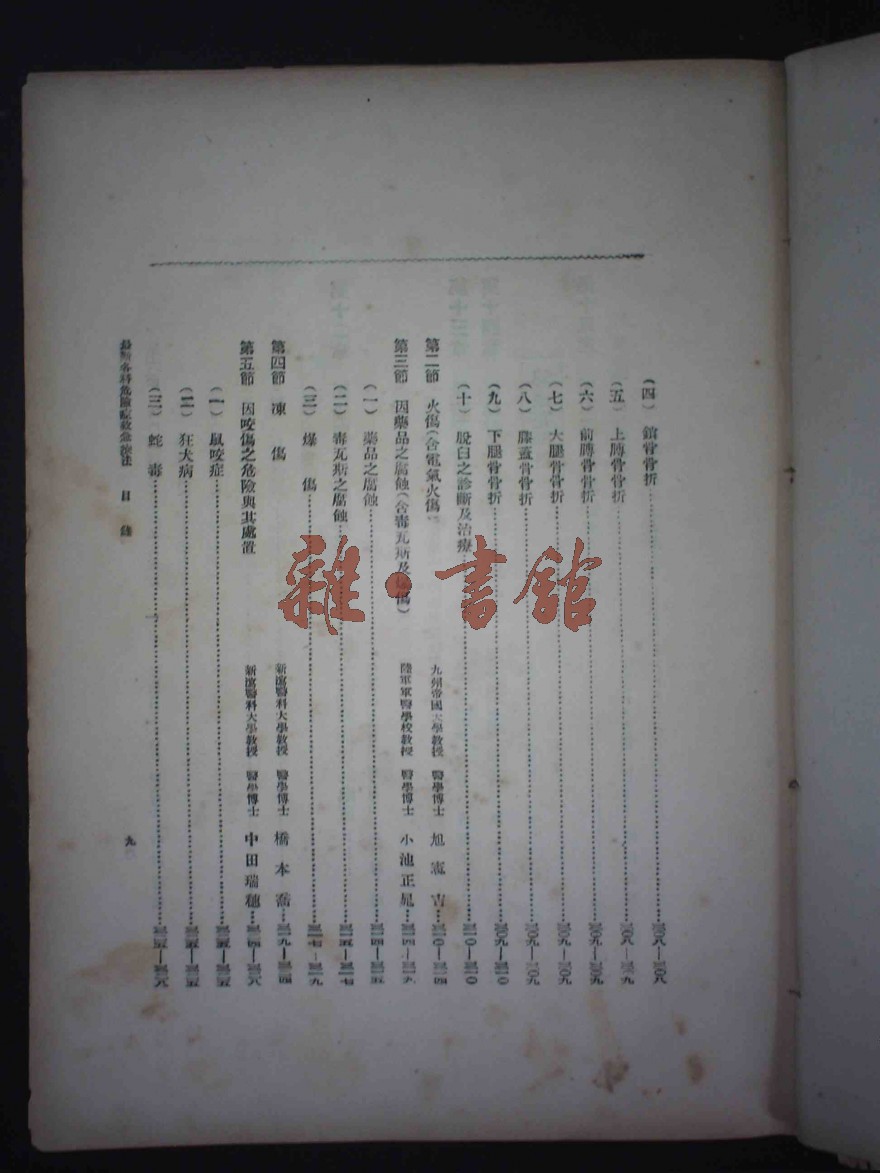 (四) 鎖骨骨折
(五) 上膊骨骨折
(六) 前膊骨骨折 三〇九—三〇九
(七) 大腿骨骨折 三〇九—三〇九
(八) 膝蓋骨骨折 三〇九—三〇九
(九) 下腿骨骨折 三〇九—三一〇
(十) 脫臼之診斷及治療 三一〇—三一〇
第二節 火傷(含電氣火傷) 九州帝國大學教授 醫學博士 旭憲吉 三一〇—三一四
第三節 因藥品之腐蝕(含毒瓦斯及爆傷) 陸軍軍醫學校教授 醫學博士 小池正晁 三一四—三一九
(一) 藥品之腐蝕 三一四—三一五
(二) 毒瓦斯之腐蝕 三一五—三一七
(三) 爆傷 三一七—三一九
第四節 凍傷 新潟醫科大學教授 醫學博士 橋本喬 三一九—三二四
第五節 因咬傷之危險與其處置 新潟醫科大學教授 醫學博士 中田瑞穗 三二四—三二八
(一) 鼠咬症 三二五—三二五
(二) 狂犬病 三二五—三二五
(三) 蛇毒 三二五—三二八
最新各科危險症救急療法 目錄
九
雜·書館